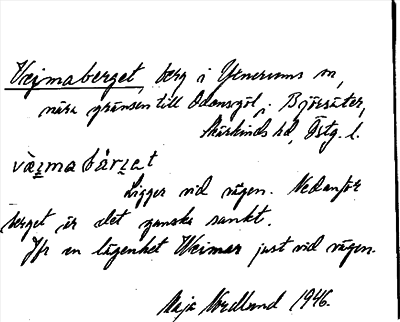 Vejmaberget berg i Yxnerums sn,
nära gränsen till Odensgöl, Björsäter,
Skärkinds hd, Östg. l.
væjmabærjat
Ligger vid vägen. Nedanför
berget är det ganska sankt.
Jfr en lägenhet Weimar just vid vägen.
Maja Nordlund 1946.